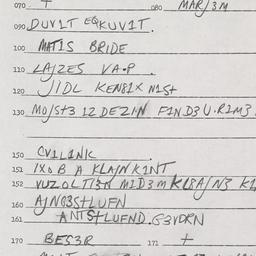 070 + 080 MAR/3M
090 DUV1T EQKUV1T.
100 MAT1S BRIDE
110 LAJZES VA.P
120 JIDL KEN81X N1St
130 MO/St3 12 DEZ1N F1ND3U.R1M3
150 CV1L1N1C
151 1X0 B A KLAJN K1NT
152 VUZOLT13N M1D3M KL8A/N3
160 AJNG3StLUFN
161 ANTStLUFND.G3VDRN
170 BES3R 171 +